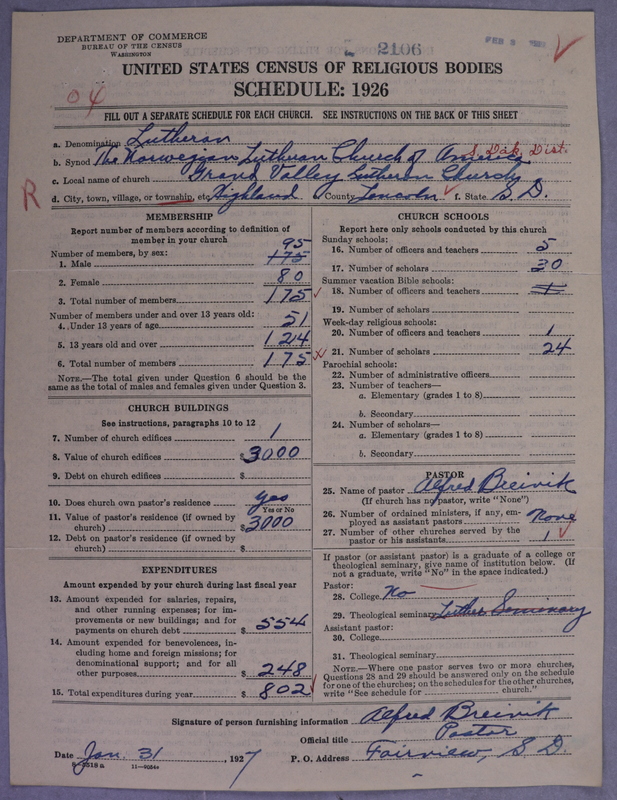 DEPARTMENT OF COMMERCE
BUREAU OF THE CENSUS
WASHINGTON
2106
FEB 3
UNITED STATES CENSUS OF RELIGIOUS BODIES
SCHEDULE: 1926
04
FILL OUT A SEPARATE SCHEDULE FOR EACH CHURCH. SEE INSTRUCTIONS ON THE BACK OF THIS SHEET
a. Denomination Lutheran
b. Synod The Norwegian Lutheran Church of America S. Dak. Dist.
c. Local name of church Grand Valley Lutheran Church
R
d. City, town, village, or township, etc. Highland e. County Lincoln f. State S. D.
MEMBERSHIP
Report number of members according to definition of
member in your church
Number of members, by sex: 95
1. Male 175
2. Female 80
3. Total number of members 175
Number of members under and over 13 years old:
4. Under 13 years of age 51
5. 13 years old and over 124
6. Total number of members 175
NOTE.—The total given under Question 6 should be the
same as the total of males and females given under Question 3.
CHURCH BUILDINGS
See instructions, paragraphs 10 to 12
7. Number of church edifices 1
8. Value of church edifices $3000
9. Debt on church edifices $
10. Does church own pastor's residence yes
Yes or No
11. Value of pastor's residence (if owned by
church) $3000
12. Debt on pastor's residence (if owned by
church) $
EXPENDITURES
Amount expended by your church during last fiscal year
13. Amount expended for salaries, repairs,
and other running expenses; for im-
provements or new buildings; and for
payments on church debt $554
14. Amount expended for benevolences, in-
cluding home and foreign missions; for
denominational support; and for all
other purposes $248
15. Total expenditures during year $802
CHURCH SCHOOLS
Report here only schools conducted by this church
Sunday schools:
16. Number of officers and teachers 5
17. Number of scholars 30
Summer vacation Bible schools:
18. Number of officers and teachers 1
19. Number of scholars
Week-day religious schools:
20. Number of officers and teachers 1
21. Number of scholars 24
Parochial schools:
22. Number of administrative officers
23. Number of teachers—
a. Elementary (grades 1 to 8)
b. Secondary
24. Number of scholars—
a. Elementary (grades 1 to 8)
b. Secondary
PASTOR
25. Name of pastor Alfred Breivik
(If church has no pastor, write "None")
26. Number of ordained ministers, if any, em-
ployed as assistant pastors None
27. Number of other churches served by the
pastor or his assistants 1
If pastor (or assistant pastor) is a graduate of a college or
theological seminary, give name of institution below. (If
not a graduate, write "No" in the space indicated.)
Pastor:
28. College No
29. Theological seminary Luther Seminary
Assistant pastor:
30. College
31. Theological seminary
NOTE.—Where one pastor serves two or more churches,
Questions 28 and 29 should be answered only on the schedule
for one of the churches; on the schedules for the other churches,
write "See schedule for church."
Signature of person furnishing information Alfred Breivik
Official title Pastor
Date Jan. 31, 1927 P. O. Address Fairview, S D.
8-5318a 11—9084